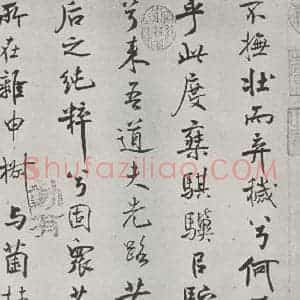 不撫壯而弃穢兮何
乎此度椉騏驥㠯
兮來吾道夫先路
后之純粹兮固眾
所在雜申椒與菌
Shufaziliao.COM